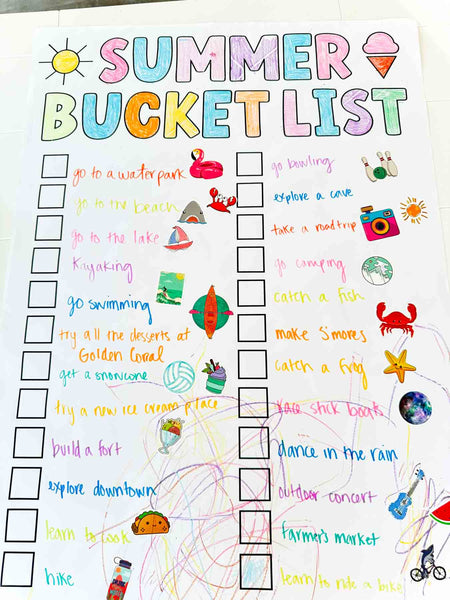 SUMMER
BUCKET LIST
go to a waterpark
go to the beach
go to the lake
Kayaking
go swimming
try all the desserts at
Golden Coral
get a snowcone
try a new ice cream place
build a fort
explore downtown
learn to cook
hike
go bowling
explore a cave
take a roadtrip
go camping
catch a fish
make S'mores
catch a frog
race stick boats
dance in the rain
outdoor concert
farmer's market
learn to ride a bike